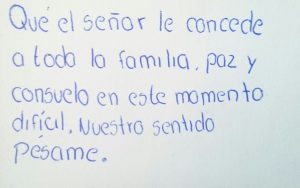 Qué el señor le concede
a toda la familia, paz y
consuelo en este momento
difícil. Nuestro sentido
Pesame.